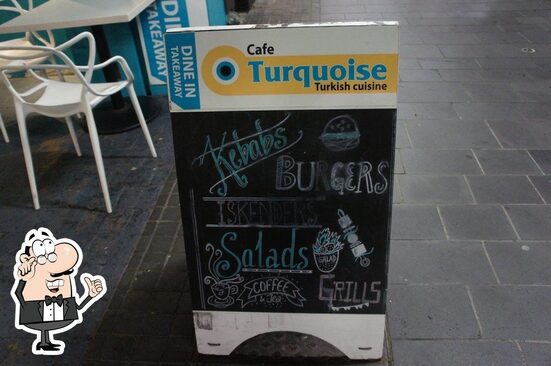 DINE IN
TAKEAWAY
Cafe
Turquoise
Turkish cuisine
DINE IN
TAKEAWAY
Kebabs
BURGERS
ISKENDERS
Salads
SALAD
COFFEE
& Tea
GRILLS